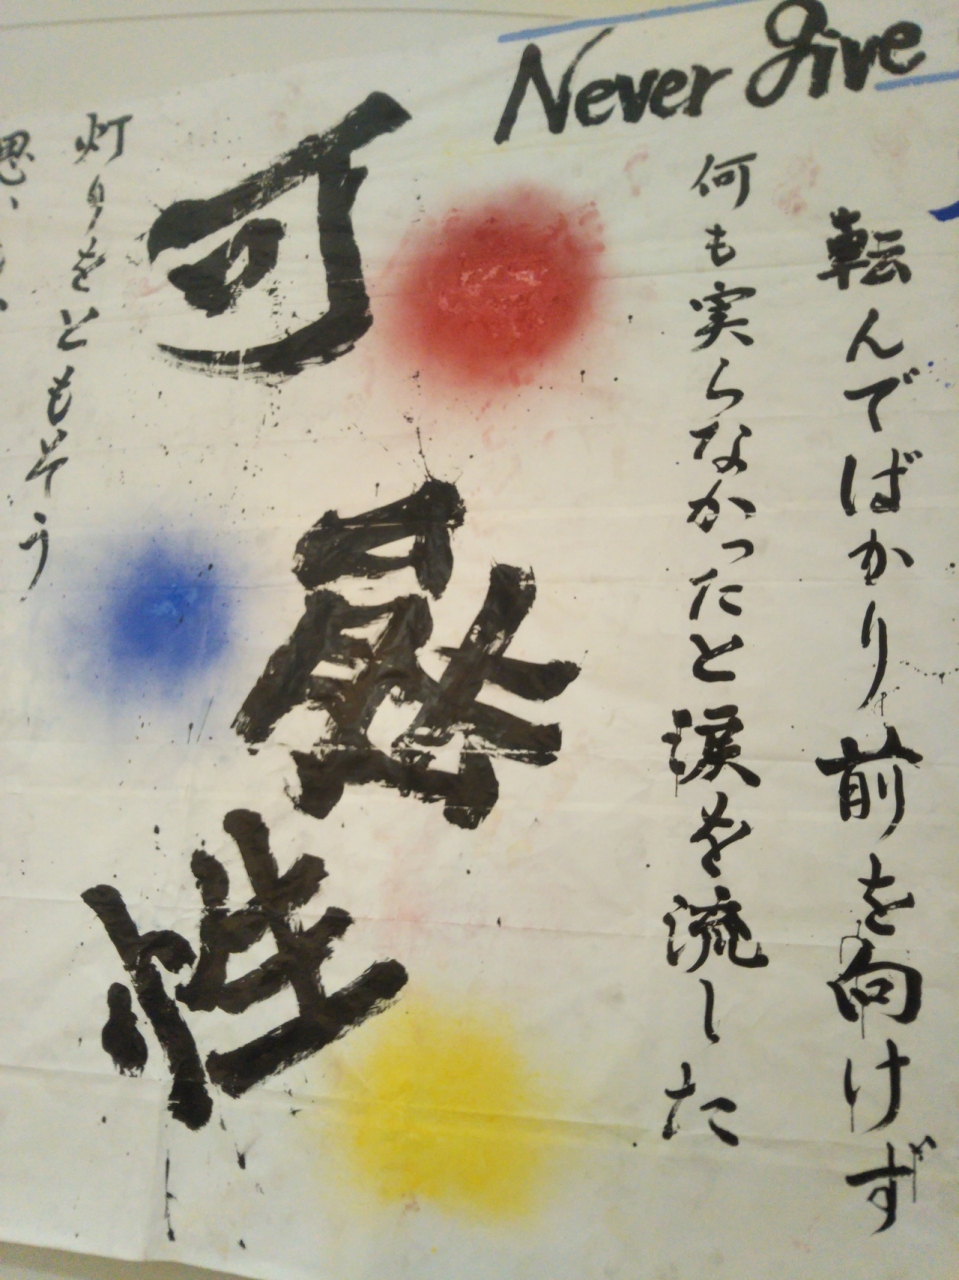 Never give
転んでばかり前を向けず
何も実らなかったと涙を流した
可能性
灯りをともそう